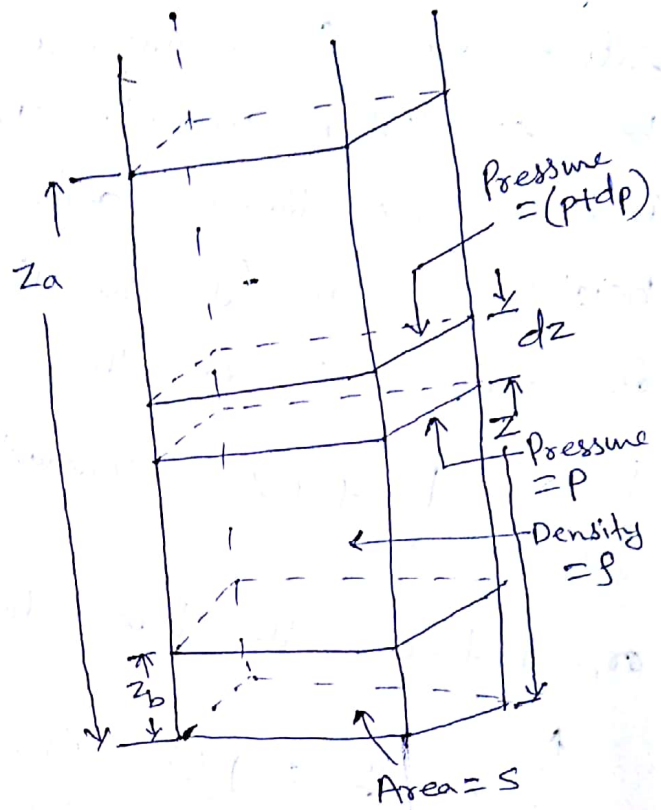 Pressure
= (p+dp)
Za
dz
Z
Pressure
= P
Density
= ρ
Zb
Area = S